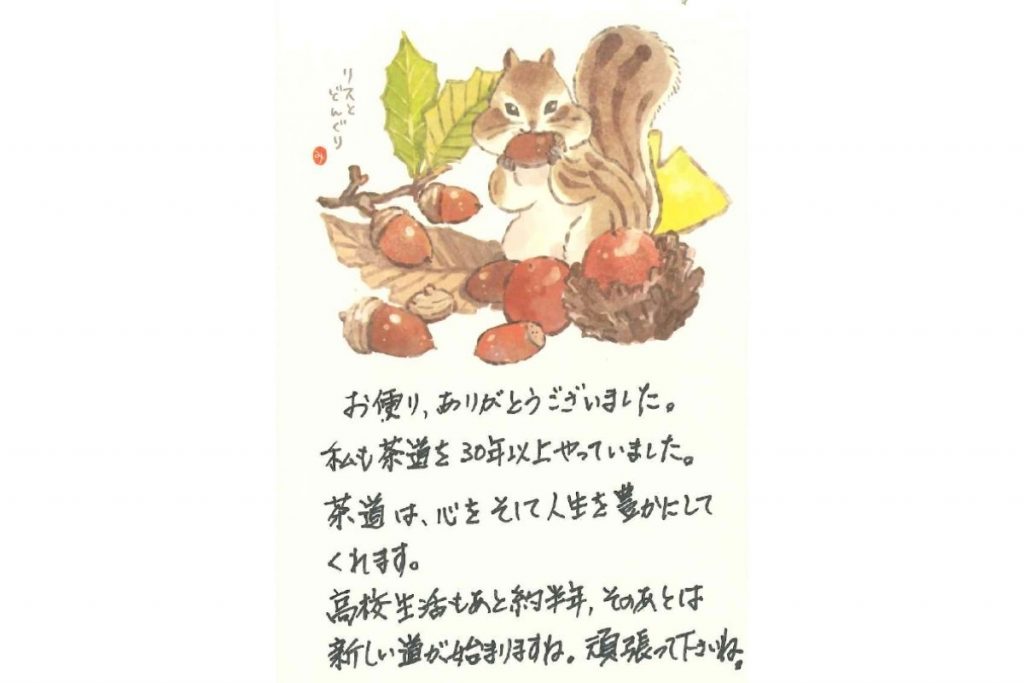 リスと
どんぐり
み
お便り,ありがとうございました。
私も茶道を30年以上やっていました。
茶道は、心をそして人生を豊かにして
くれます。
高校生活もあと約半年,そのあとは
新しい道が始まりますね。頑張って下さいね。